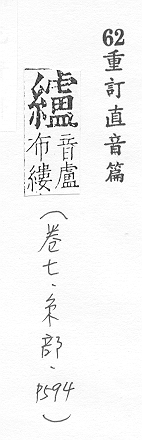 62重訂直音篇
纑音盧布縷
(卷七·糸部·P594)